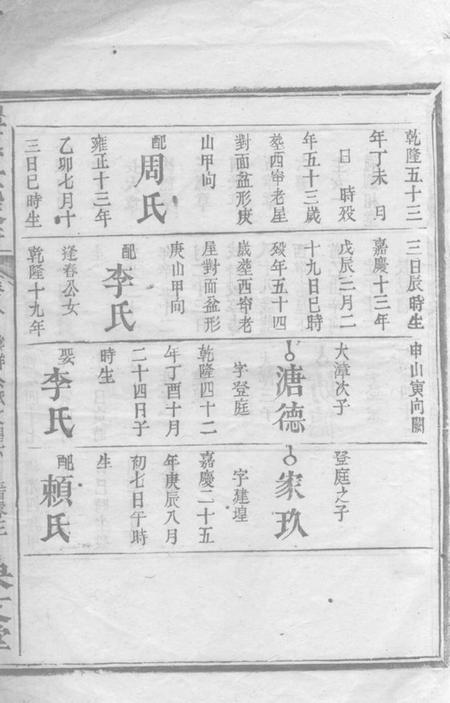 乾隆五十三
年丁未 月
日 時殁
年五十三歲
塟西帘老星
對面盆形庚
山甲向
配
周氏
雍正十三年
乙卯七月十
三日巳時生
三日辰時生
嘉慶十三年
戊辰三月二
十九日巳時
殁年五十四
歲塟西帘老
星對面盆形
庚山甲向
配
李氏
逢春公女
乾隆十九年
申山寅向關
大漳次子
溏德
字登庭
乾隆四十二
年丁酉十月
二十四日子
時生
娶
李氏
登庭之子
家玖
字建埕
嘉慶二十五
年庚辰八月
初七日午時
生
配
賴氏